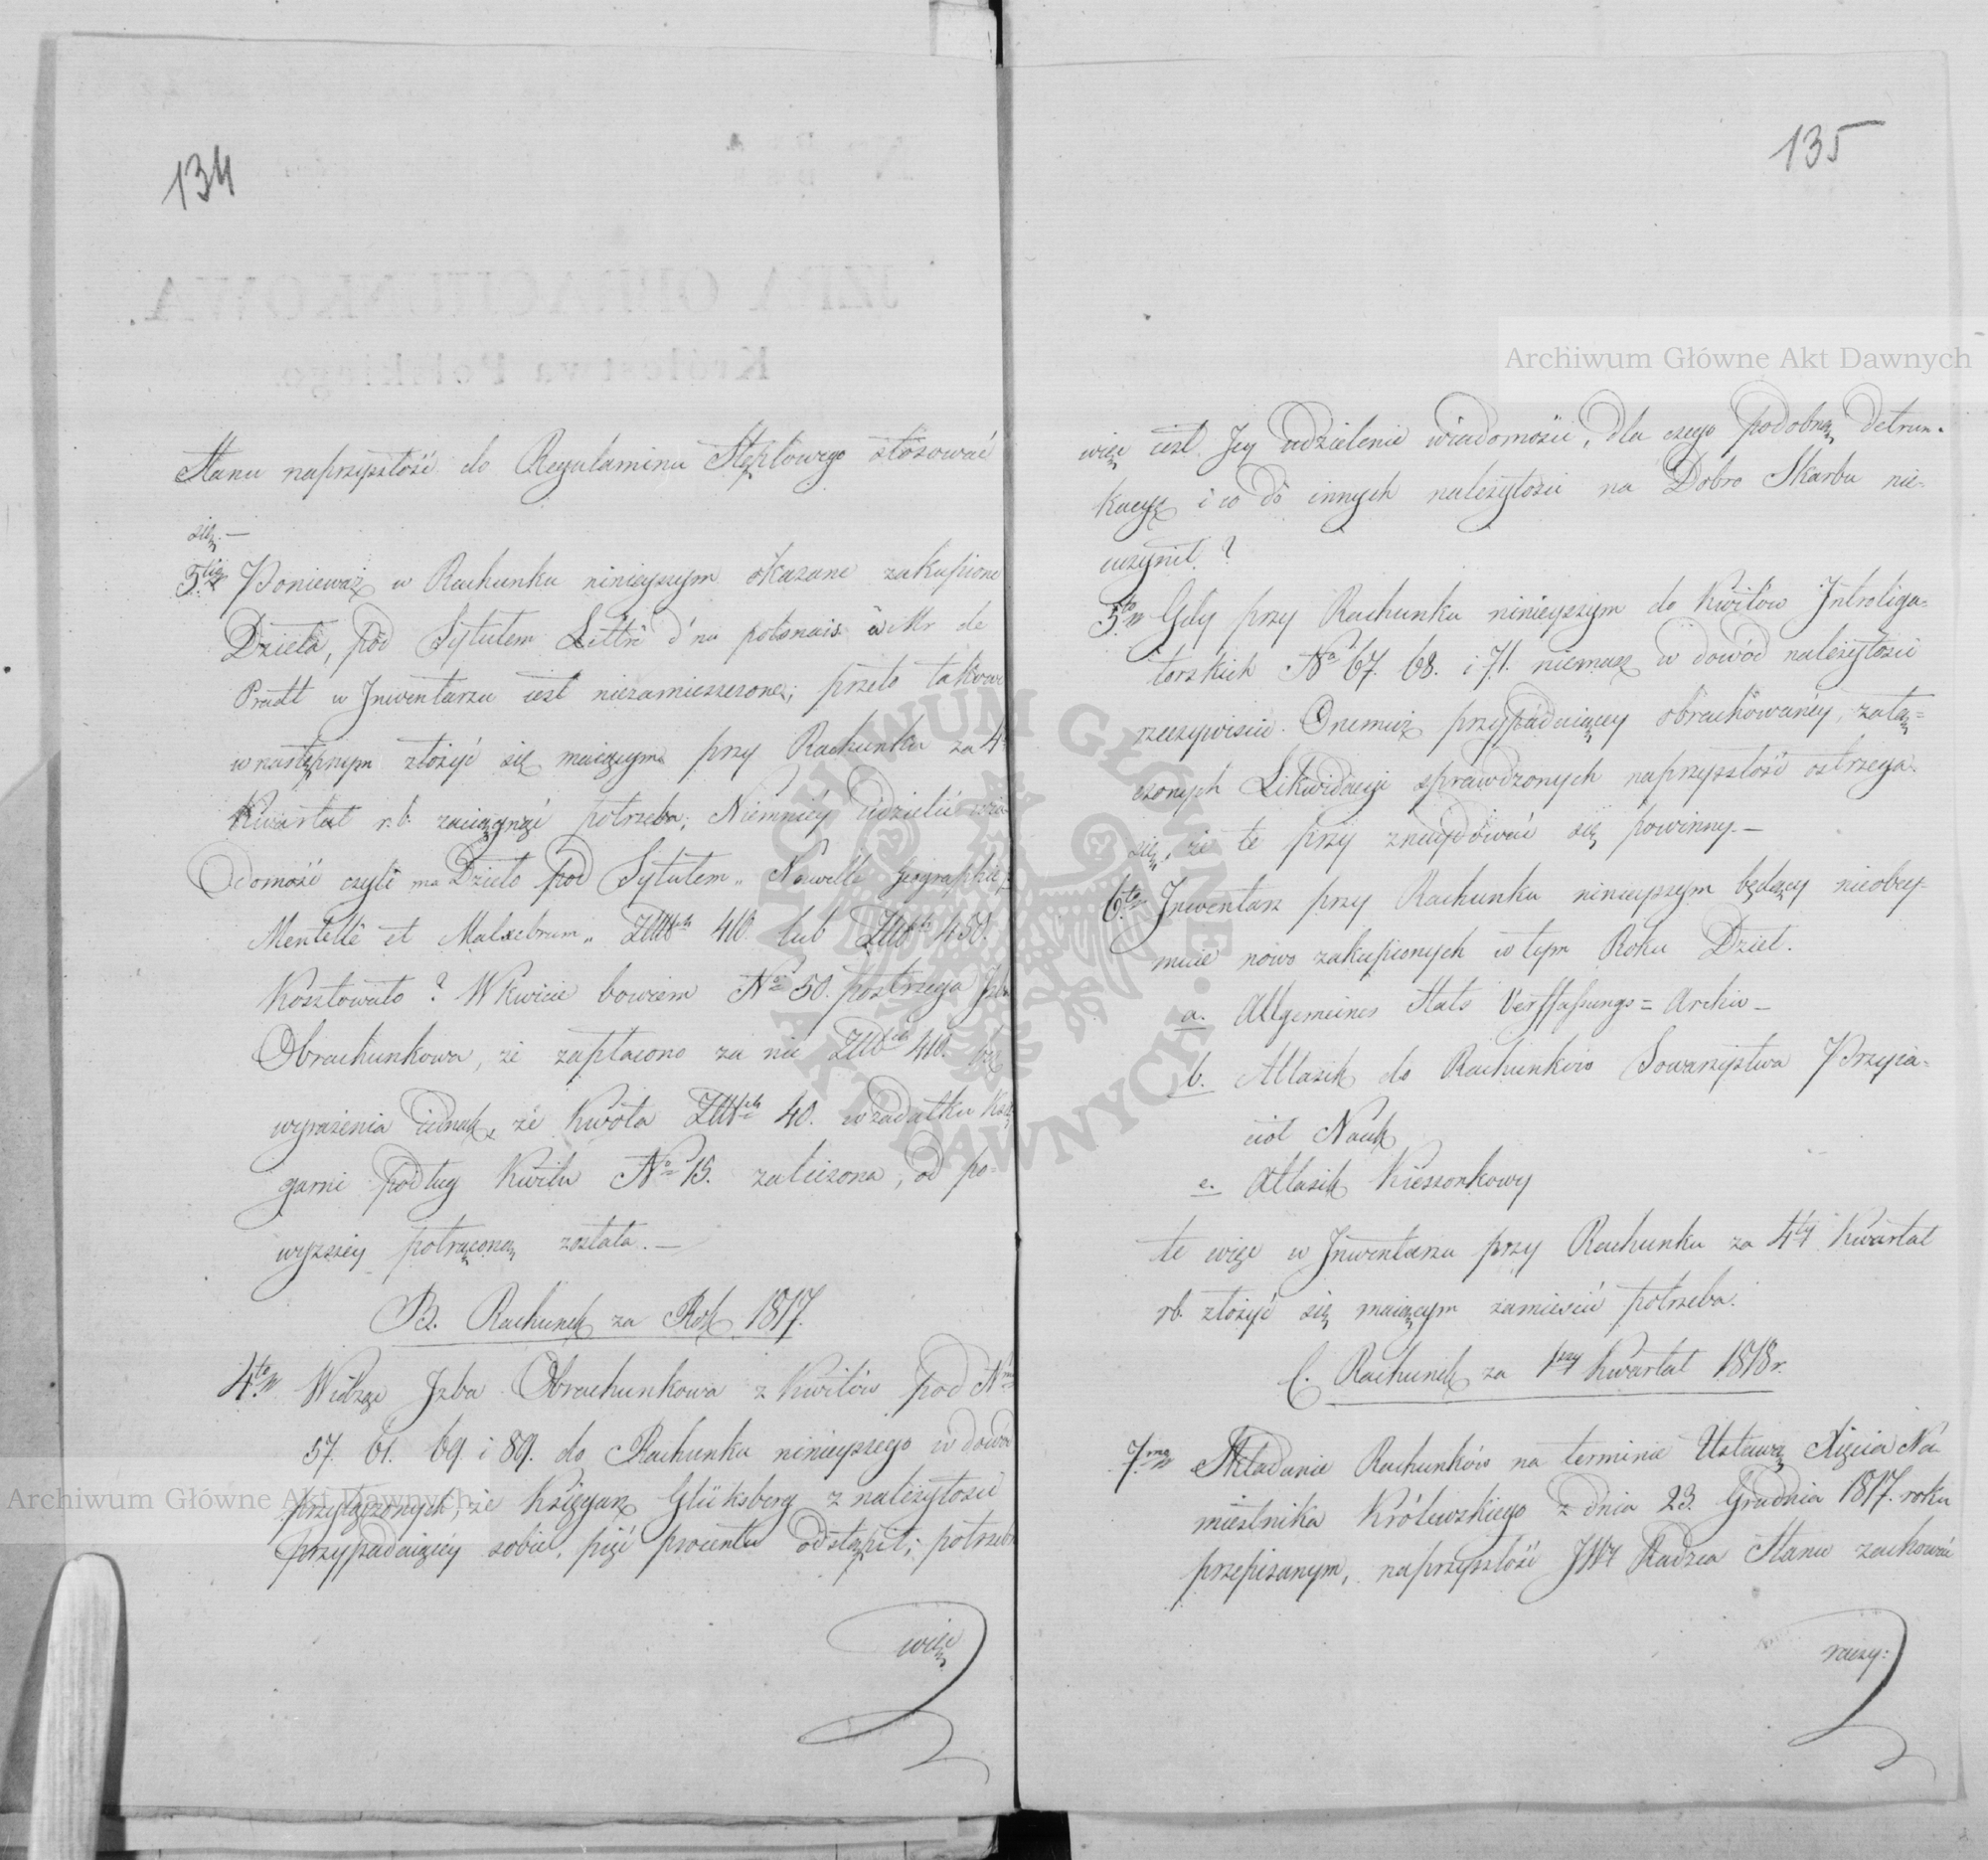 134
Stanu naprzyszłość do Regulaminu Stęplowego stósować
się. —
3.cie Ponieważ w Rachunku ninieyszym okazane zakupione
Dzieła, pod Tytułem Lettre d'un polonais à Mr de
Pradt w Jnwentarzu iest niezamieszczone; przeto takowe
w następnym złożyć się maiącym przy Rachunku za 4
Kwartał r.b. zaciągnąć potrzeba; Niemniéy udzielić wia-
domość czyli Dzieło pod Tytułem „ Nouvelle Geographie
Mentelle et Malxebrum „ 410. lub 450.
Kosztowało? W kwicie bowiem No 50. postrzega Jzba
Obrachunkowa, że zapłacono za nie 410. bez
wyrażenia iednak, że Kwota 40. w zadatku Księ
garni podług Kwitu No 15. zaliczona, od po-
wyższey potrąconą została. —
B. Rachunek za Rok 1817.
4.to Widząc Jzba Obrachunkowa z Kwitów pod Nm
57. 61. 69. i 89. do Rachunku ninieyszego w dowód
przyłączonych, że Księgarz Glüksberg z należytości
przypadaiącéy sobie, pięć procentu odstąpił; potrzebn
więc
135
więc iest Jey udzielenie wiadomości, dla czego podobną detrun-
kacyę i co do innych należytości na Dobro Skarbu nie-
uczynił?
5.to Gdy przy Rachunku ninieyszym do Kwitów Jntroliga-
torskich No 67. 68. i 71. niemasz w dowód należytości
rzeczywiście Onemuż przypadaiącey obrachowanéy, załą-
czonych Likwidacyi sprawdzonych naprzyszłość ostrzega
się, że te przy znaydować się powinny. —
6.to Jnwentarz przy Rachunku ninieyszym będący nieobey-
muie nowo zakupionych w tym Roku Dzieł.
a. Allgemeines Stats Verffassungs = Archiv —
b. Atlasik do Rachunków Towarzystwa Przyia-
ciół Nauk
c. Atlasik Kieszonkowy
te więc w Jnwentarzu przy Rachunku za 4ty Kwartał
rb. złożyć się maiącym zamieścić potrzeba.
C. Rachunek za 1szy Kwartał 1818 r.
7.mo Składanie Rachunków na terminie Ustawą Xięcia Na-
miestnika Królewskiego z dnia 23. Grudnia 1817. roku
przepisanym, naprzyszłość JW Radzca Stanu zachować
raczy:
Archiwum Główne Akt Dawnych
Archiwum Główne Akt Dawnych
ARCHIWUM GŁÓWNE AKT DAWNYCH